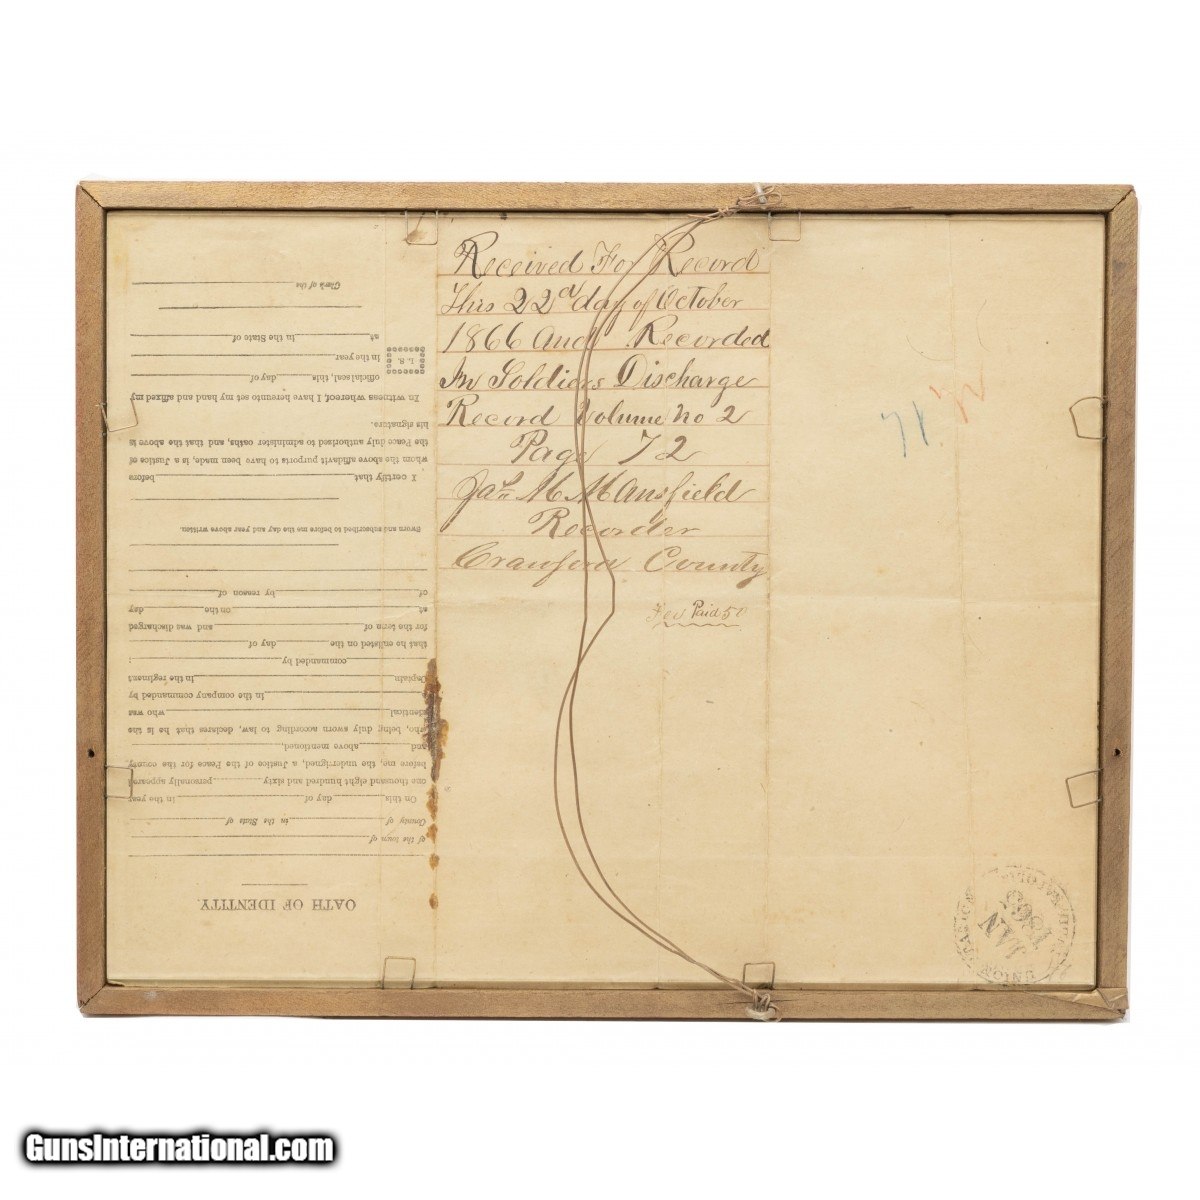 Received For Record
This 22d day of October
1866 And Recorded
In Soldiers Discharge
Record Volume No 2
Page 72
Jas M Mansfield
Recorder
Crawford County
Fee Paid 50
OATH OF IDENTITY.
of the town of
County of in the State of
On this day of in the year
one thousand eight hundred and sixty personally appeared
before me, the undersigned, a Justice of the Peace for the county
and above mentioned,
who, being duly sworn according to law, declares that he is the
identical who was
in the company commanded by
Captain in the regiment
commanded by ;
that he enlisted on the day of
for the term of and was discharged
at on the day
of by reason of
Sworn and subscribed to before me the day and year above written.
I certify that before
whom the above affidavit purports to have been made, is a Justice of
the Peace duly authorized to administer oaths, and that the above is
his signature.
In witness whereof I have hereunto set my hand and affixed my
official seal, this day of
L. S. in the year
at in the State of
Clerk of the
JAN
GunsInternational.com